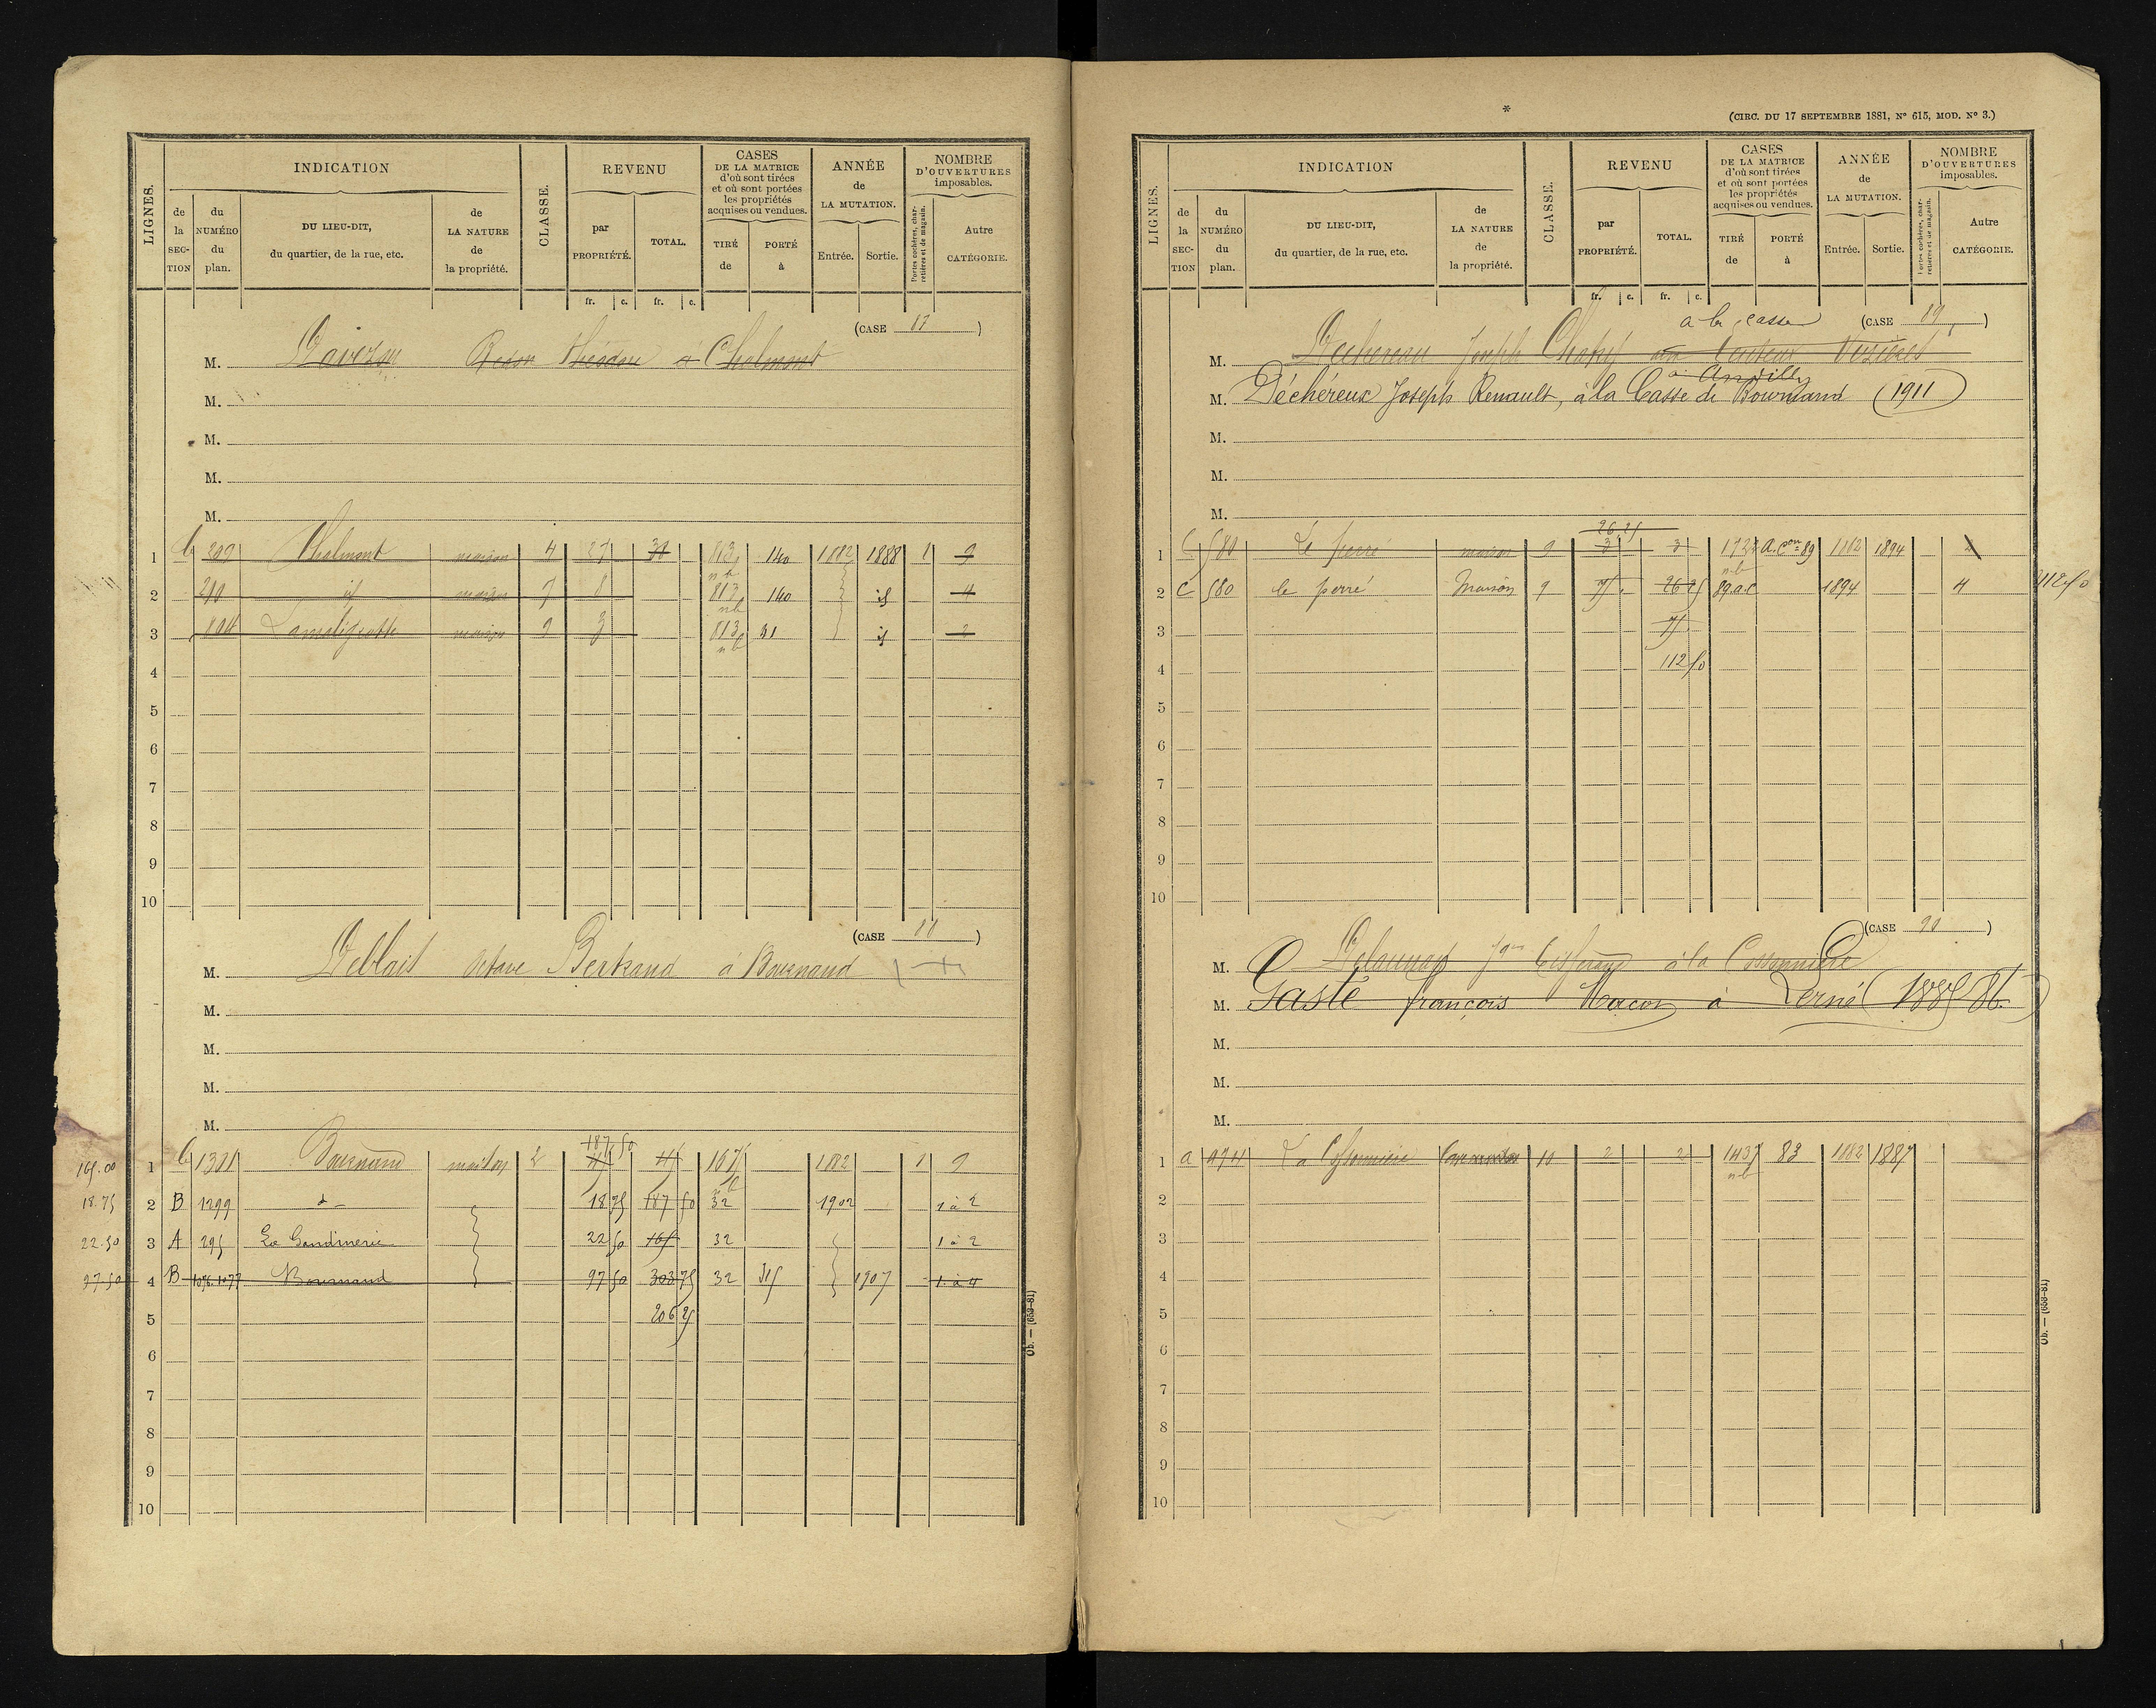 LIGNES.
INDICATION
de la SEC-TION
du NUMÉRO du plan.
DU LIEU-DIT, du quartier, de la rue, etc.
de LA NATURE de la propriété.
CLASSE.
REVENU
par PROPRIÉTÉ.
TOTAL.
fr. c. fr. c.
CASES DE LA MATRICE d'où sont tirées et où sont portées les propriétés acquises ou vendues.
TIRÉ de
PORTÉ à
ANNÉE de LA MUTATION.
Entrée. Sortie.
NOMBRE D'OUVERTURES imposables.
Portes cochères, charretières et de magasin.
Autre CATÉGORIE.
(CASE 87)
M. Théodore à Chalmont
M.
M.
M.
M.
1 Chalmont maison 4 27 813 140 1882 1888 1 9
2 id maison 7 8 813 140 id 4
3 maison 9 3 813 31 id 2
4
5
6
7
8
9
10
(CASE 88)
M. Deblais Octave Bertrand à Bournand
M.
M.
M.
M.
187 50
165.00 1 1301 Bournand maison 2 1882 1 9
18.75 2 B 1299 d- 18 75 187 50 32 1902 1 à 2
22.50 3 A 295 La Gandinerie 22 50 165 32 1 à 2
97.50 4 B 1076.1077 Bournand 97 50 303 75 32 315 1907 1 à 4
5 206 25
6
7
8
9
10
Ob. — (653-81)
*
(CIRC. DU 17 SEPTEMBRE 1881, N° 615, MOD. N° 3.)
LIGNES.
INDICATION
de la SEC-TION
du NUMÉRO du plan.
DU LIEU-DIT, du quartier, de la rue, etc.
de LA NATURE de la propriété.
CLASSE.
REVENU
par PROPRIÉTÉ.
TOTAL.
fr. c. fr. c.
CASES DE LA MATRICE d'où sont tirées et où sont portées les propriétés acquises ou vendues.
TIRÉ de
PORTÉ à
ANNÉE de LA MUTATION.
Entrée. Sortie.
NOMBRE D'OUVERTURES imposables.
Portes cochères, charretières et de magasin.
Autre CATÉGORIE.
a la casse (CASE 89)
M. Dechereau Joseph Vezières
à Andilly
M. Déchéreux Joseph Renault, à la Casse de Bournand (1911)
M.
M.
M.
26.25
1 C 580 Le perré maison 9 3 3 A. con 89 1882 1894
2 C 580 le perré Maison 9 75 26 25 89 a.c 1894 4 112.50
3 75
4 112 50
5
6
7
8
9
10
(CASE 90)
M. Delaunay à la Cossonnière
M. Gasté françois Macon à Lerné (1885 86.)
M.
M.
M.
1 a 974 10 2 2 1437 83 1882 1887
2
3
4
5
6
7
8
9
10
Ob. — (653-81)